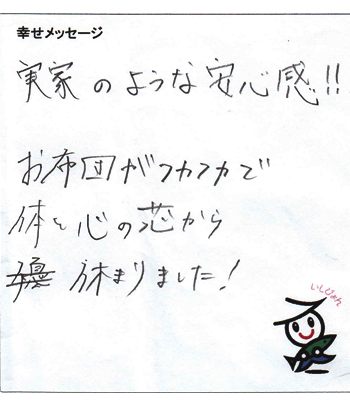 幸せメッセージ
実家のような安心感!!
お布団がフカフカで
体と心の芯から
休まりました!
いしぴょん